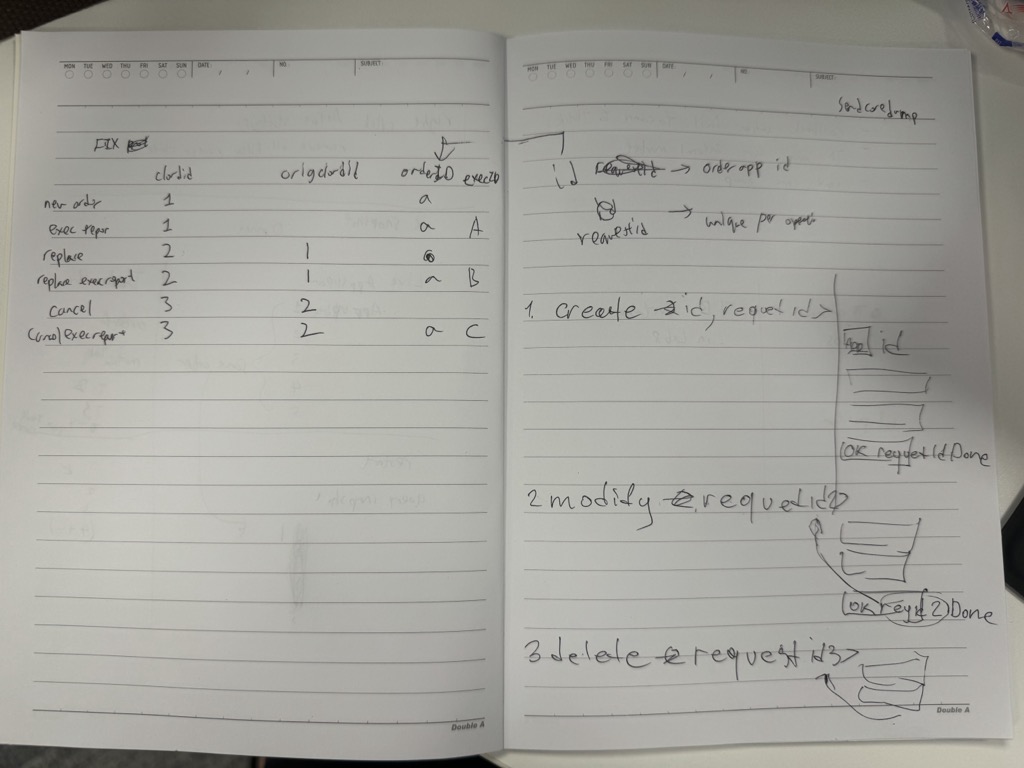 MON TUE WED THU FRI SAT SUN DATE: , , NO: SUBJECT:
FIX
clordid origclordid orderID execID
new ordr 1 a
exec repor 1 a A
replace 2 1
replace execreport 2 1 a B
cancel 3 2
Cancel execreport 3 2 a C
Double A
MON TUE WED THU FRI SAT SUN DATE: , , NO: SUBJECT:
id → orderapp id
requestid → unique per
1. create id, requet id>
id
OK requetId Done
2 modify requetid2>
OK 2) Done
3 delete request id3>
Double A